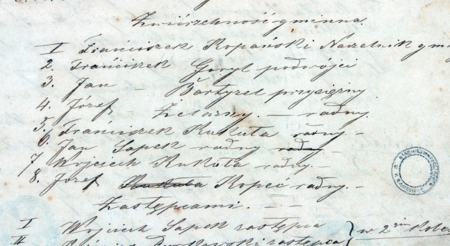 Zwierzchność gminna
1 Franciszek Kopański Naczelnik gmi
2. Franciszek Goryl podwójci
3. Jan Bartyzel przysiężny
4. Józef - radny
5. Franciszek Kukuła radny
6. Jan Sapek radny
7 Wojciech Kukuła radny
8. Józef Kopeć radny -
Zastępcami. - -
I Wojciech Sapek zastępca
II zastępca } w 2im Kole